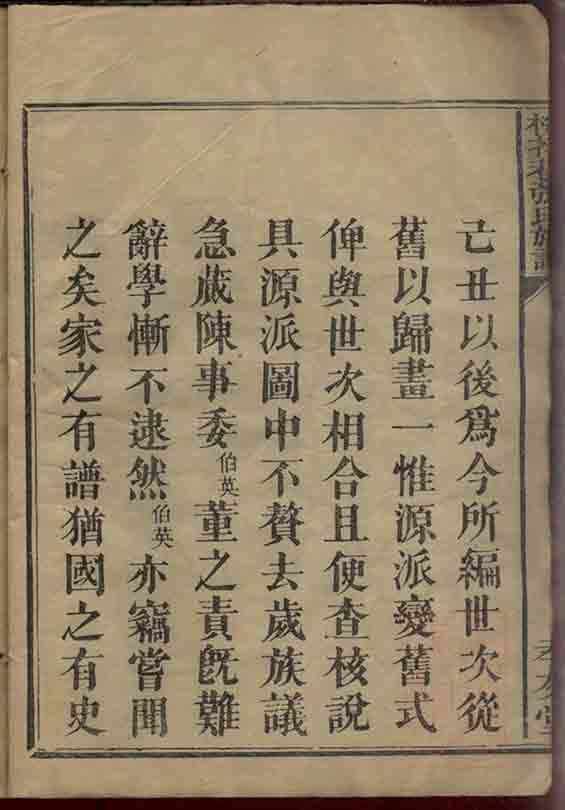 己丑以後爲今所編世次從
舊以歸畫一惟源派變舊式
俾與世次相合且便查核說
具源派圖中不贅去歲族議
急蕆陳事委伯英董之責旣難
辭學慚不逮然伯英亦竊嘗聞
之矣家之有譜猶國之有史
張氏族譜
孝友堂